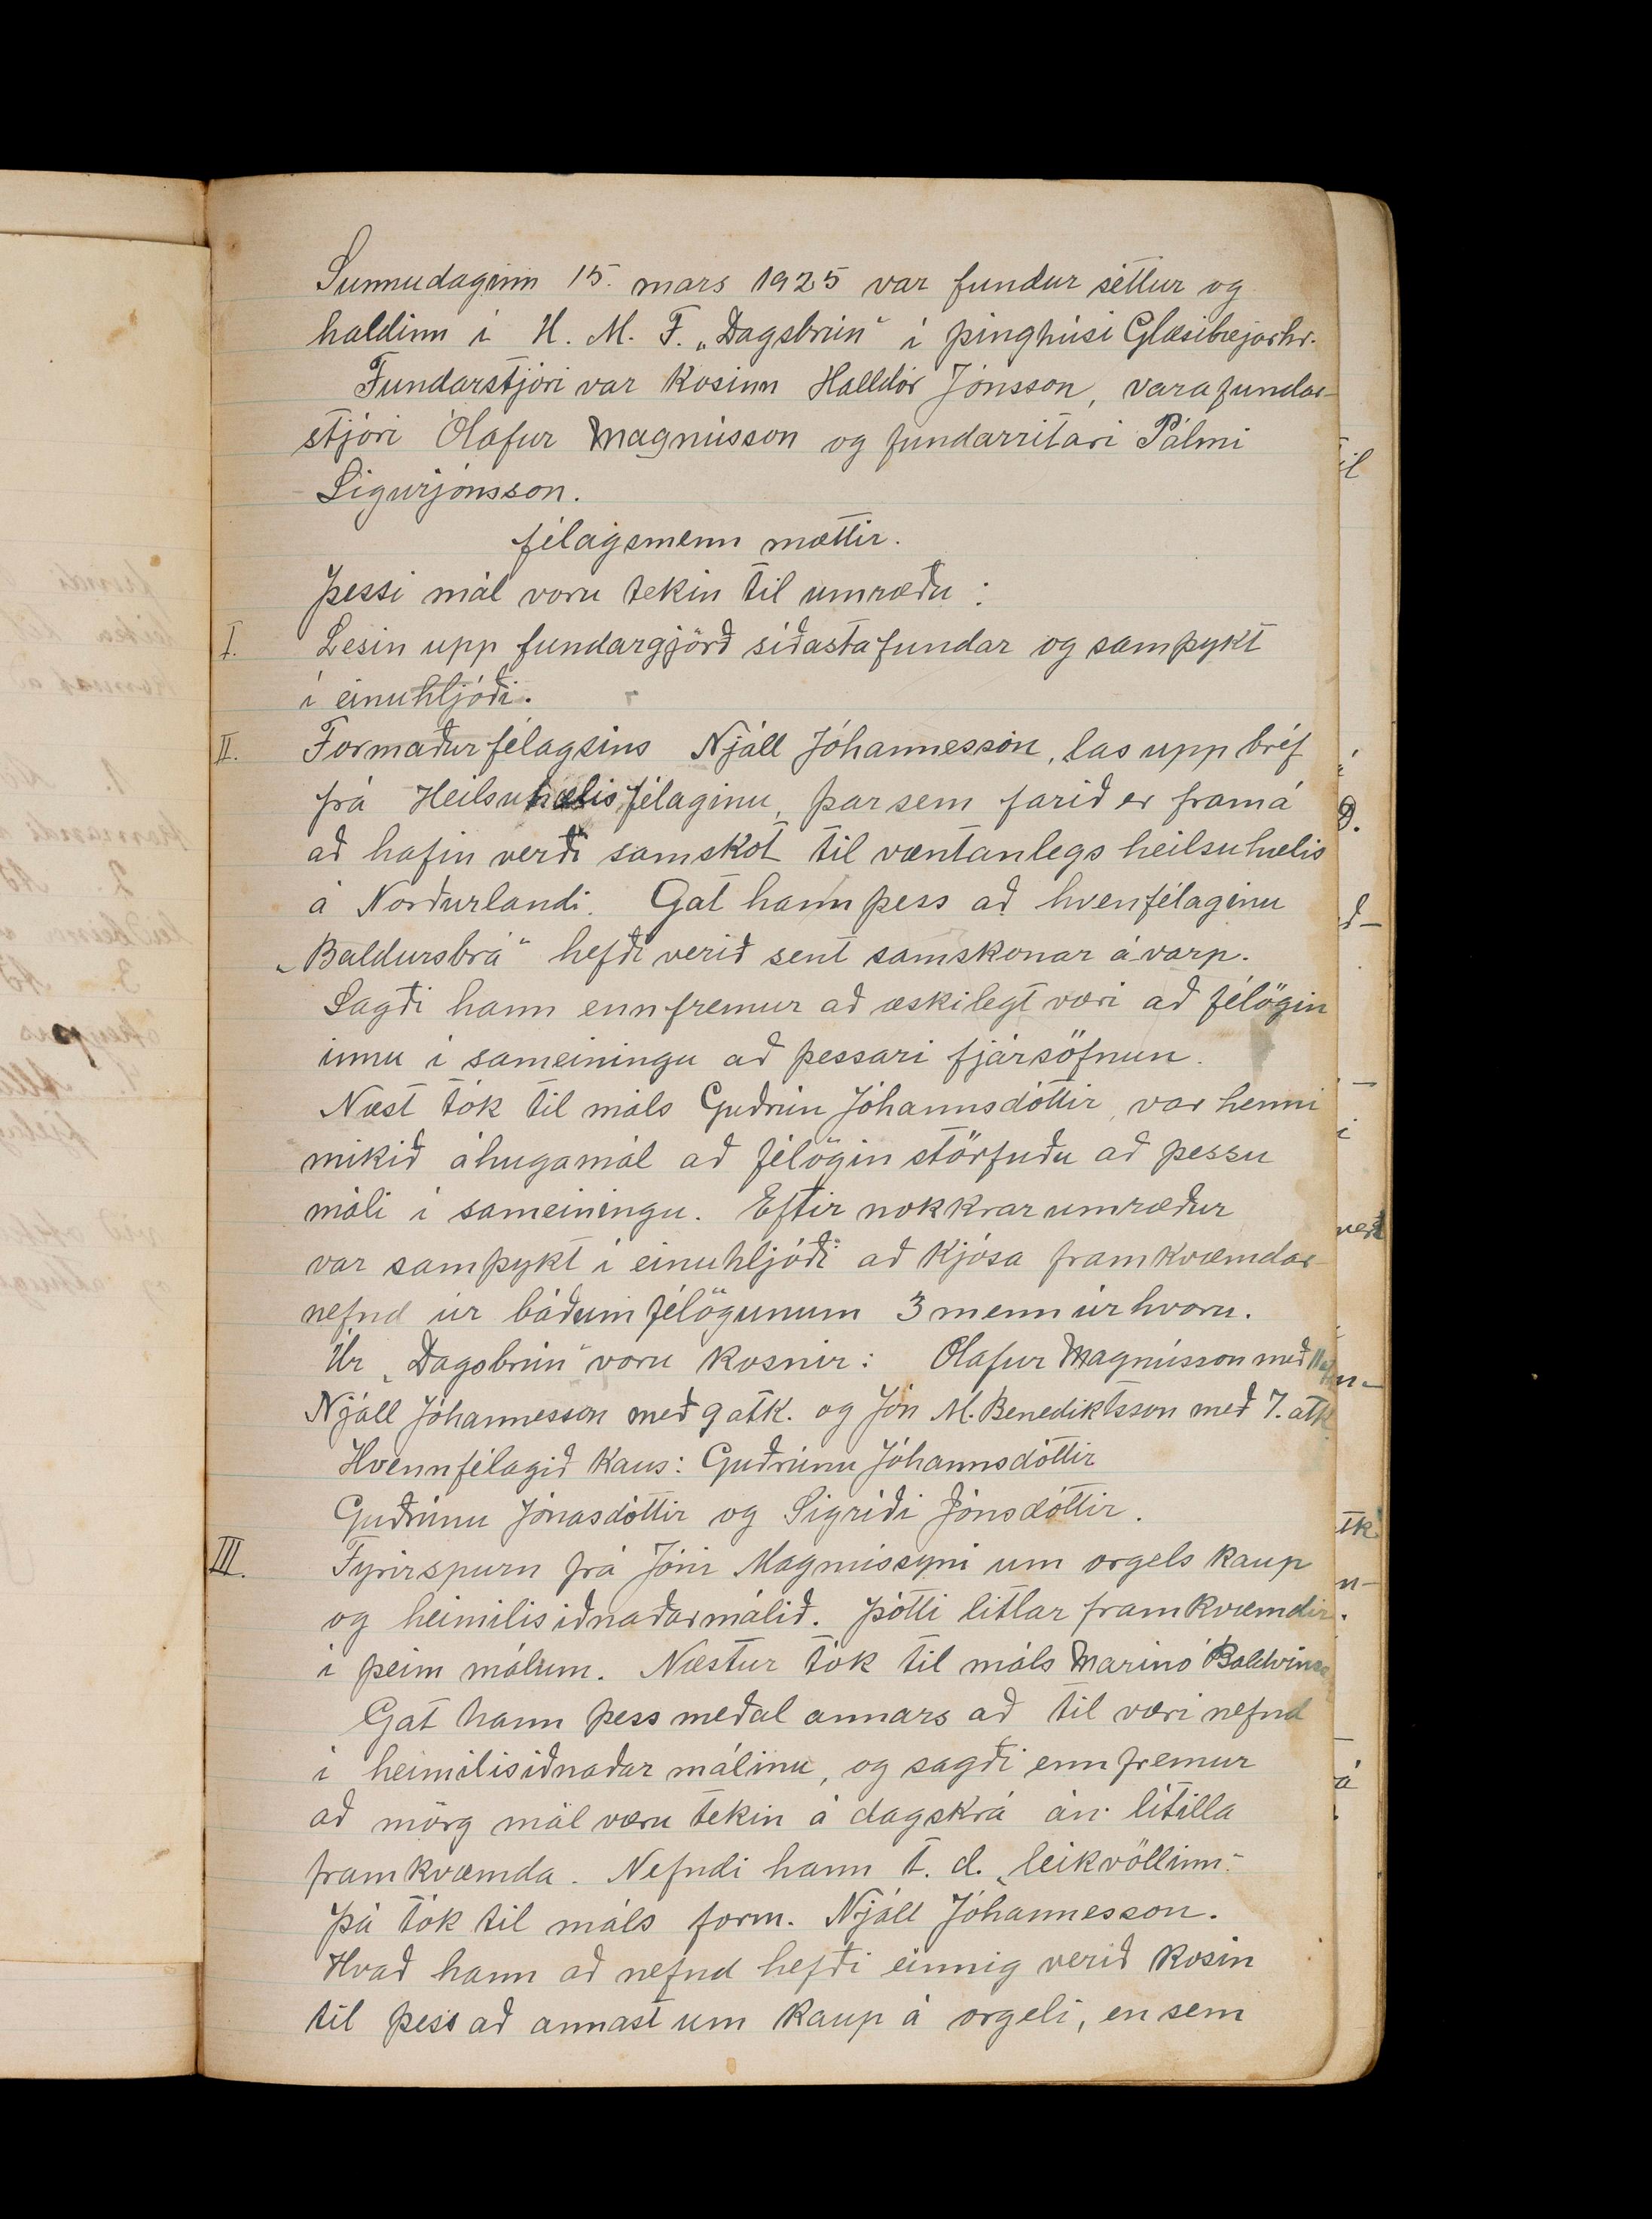 Sunnudaginn 15. mars 1925 var fundur séttur og
haldinn í U. M. F. „Dagsbrún“ í þinghúsi Glæsibæjarhr.
Fundarstjóri var kosinn Halldór Jónsson, varafundar-
stjóri Ólafur Magnússon og fundarritari Pálmi
Sigurjónsson.
félagsmenn mættir.
Þessi mál voru tekin til umræðu:
I. Lesin upp fundargjörð síðasta fundar og samþykt
í einuhljóði.
II. Formaður félagsins Njáll Jóhannesson, las upp bréf
frá Heilsuhælisfélaginu, þar sem farið er framá
að hafin verði samskot til væntanlegs heilsuhælis
á Norðurlandi. Gat hann þess að hvenfélaginu
„Baldursbrá“ hefði verið sent samskonar ávarp.
Sagði hann ennfremur að æskilegt væri að félögin
innu í sameiningu að þessari fjársöfnun.
Næst tók til máls Guðrún Jóhannsdóttir, var henni
mikið áhugamál að félögin störfuðu að þessu
máli í sameiningu. Eftir nokkrar umræður
var samþykt í einuhljóði að kjósa framkvæmdar-
nefnd úr báðum félögunum 3 menn úr hvoru.
Úr „Dagsbrún“ voru kosnir: Ólafur Magnússon með 11 at
Njáll Jóhannesson með 9 atk. og Jón M. Benediktsson með 7. atk
Hvennfélagið kaus: Guðrúnu Jóhannsdóttir
Guðrúnu Jónasdóttir og Sigríði Jónsdóttir.
III. Fyrirspurn frá Jóni Magnússyni um orgels kaup
og heimilisiðnaðarmálið. Þótti litlar framkvæmdir
í þeim málum. Næstur tók til máls Marinó Baldvinss
Gat hann þess meðal annars að til væri nefnd
í heimilisiðnaðar málinu, og sagði ennfremur
að mörg mál væru tekin á dagskrá án lítilla
framkvæmda. Nefndi hann t. d. „leikvöllinn“
Þá tók til máls form. Njáll Jóhannesson.
Hvað hann að nefnd hefði einnig verið kosin
til þess að annast um kaup á orgeli, en sem